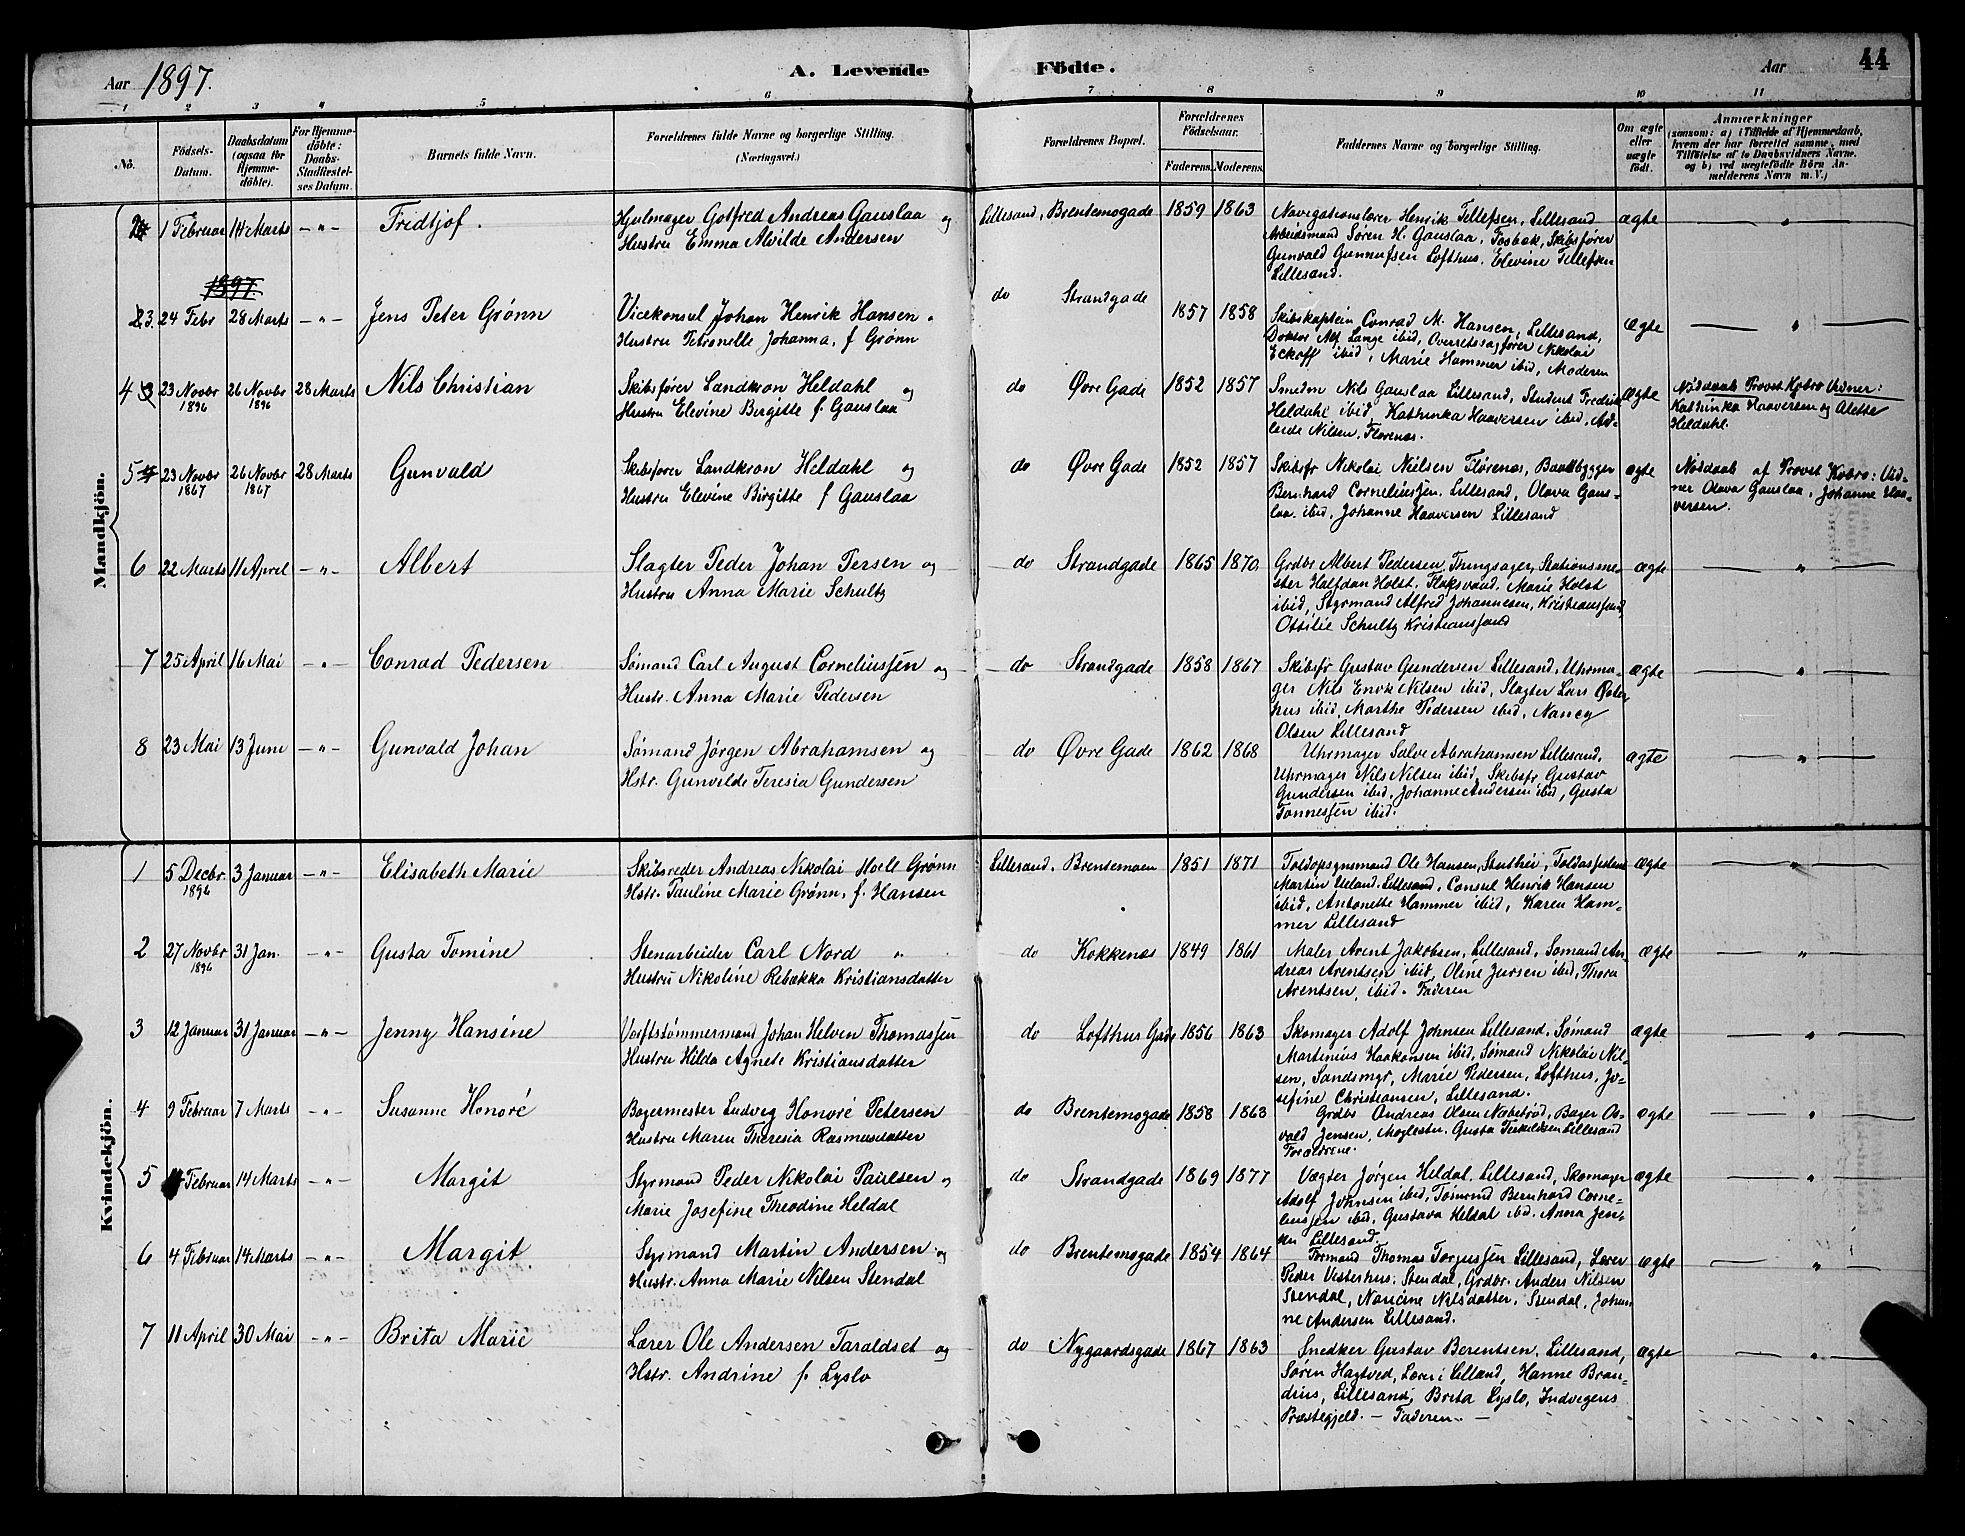 Aar 1897. A. Levende Födte. Aar 44
1 2 3 4 5 6 7 8 9 10 11
No.
Födsels-
Datum.
Daabsdatum
(ogsaa for
Hjemme-
döbte).
For Hjemme-
döbte:
Daabs-
Stadfæstel-
ses Datum.
Barnets fulde Navn.
Forældrenes fulde Navne og borgerlige Stilling.
(Næringsvei.)
Forældrenes Bopæl.
Forældrenes
Födselsaar.
Faderens. Moderens.
Faddernes Navne og borgerlige Stilling.
Om ægte
eller
uægte
født.
Anmærkninger
(saasom: a) i Tilfælde af Hjemmedaab,
hvem der har forrettet samme, med
Tilföielse af to Daabsvidners Navne,
og b) ved uægtefödte Börn An-
melderens Navn m. V.)
Mandkjön.
2 1 Februar 14 Marts -"- Fridtjof.
Hjulmager Gotfred Andreas Gauslaa og
Hustru Emma Alvilde Andersen
Lillesand, Brentemogade 1859 1863
Navigationslærer Henrik Tellefsen, Lillesand
Arbeidsmand Søren H. Gauslaa, Fosbæk, Skibsfører
Gunvald Gunnufsen Lofthus, Elevine Tellefsen
Lillesand.
ægte
1897.
3. 24 Febr 28 Marts -"- Jens Peter Grønn
Vicekonsul Johan Henrik Hansen
Hustru Petronelle Johanna, f Grønn
do Strandgade 1857 1858
Skibskaptein Conrad M. Hansen, Lillesand,
Doktor Alf Lange ibid, Overretssagfører Nikolai
Eckoff ibid, Marie Hammer ibid, Moderen
ægte
4 23 Novbr 1896 26 Novbr 1896 28 Marts Nils Christian
Skibsfører Landkron Heldahl og
Hustru Elevine Birgitte f. Gauslaa
do Øvre Gade 1852 1857
Smedm Nils Gauslaa Lillesand, Student Fredrik
Heldahl ibid, Kathinka Haaversen ibid, Ad-
leide Nilsen, Florenæs.
ægte
Nøddaab Provst Kobro Vidner:
Kathinka Haaversen og Alette
Heldahl.
5 23 Novbr 1867 26 Novbr 1867 28 Marts Gunvald
Skibsfører Landkron Heldahl og
Hustru Elevine Birgitte f Gauslaa
do Øvre Gade 1852 1857
Skibsfr Nikolai Nielsen Flørenæs, Baadbygger
Bernhard Corneliussen, Lillesand, Olava Gaus-
laa ibid, Johanne Haaversen Lillesand
ægte
Nøddaab af Provst Kobro: Vid-
ner Olava Gauslaa, Johanne Haa-
versen.
6 22 Marts 11 April -"- Albert
Slagter Peder Johan Persen og
Hustru Anna Marie Schultz
do Strandgade 1865 1870
Grdbr Albert Pedersen, Thingsager, Stationsme-
ster Halfdan Holst, Flaksvand, Marie Holst
ibid, Styrmand Alfred Johannesen, Kristiansund,
Ottilie Schultz Kristiansund
ægte
7 25 April 16 Mai -"- Conrad Pedersen
Sømand Carl August Corneliussen og
Hustr. Anna Marie Pedersen
do Strandgade 1858 1867
Skibsfr Gustav Gundersen Lillesand, Uhrma-
ger Nils Enok Nilsen ibid, Slagter Lars Øster
hus ibid, Marthe Pedersen ibid, Nancy
Olsen Lillesand
ægte
8 23 Mai 13 Juni -"- Gunvald Johan
Sømand Jørgen Abrahamsen og
Hstr. Gunvilde Teresia Gundersen
do Øvre Gade 1862 1868
Uhrmager Salve Abrahamsen Lillesand,
Uhrmager Nils Nilsen ibid, Skibsfr Gustav
Gundersen ibid, Johanne Andersen ibid, Gusta
Tønnessen ibid.
ægte
Kvindekjön.
1 5 Decbr. 1896 3 Januar -"- Elisabeth Marie
Skibsreder Andreas Nikolai Moele Grønn
Hstr. Pauline Marie Grønn, f. Hansen
Lillesand. Brentemoen 1851 1871
Toldopsynsmand Ole Hansen, Toldassistent
Martin Ueland, Lillesand, Consul Henrik Hansen
ibid, Antonette Hammer ibid, Karen Ham-
mer Lillesand
ægte
2 27 Novbr 1896 31 Jan. -"- Gusta Tomine
Stenarbeider Carl Nord "
Hustru Nikoline Rebækka Kristiansdatter
do Kokkenæs 1849 1861
Maler Arent Jakobsen, Lillesand, Sømand An-
dreas Arentsen ibid, Oline Jursen ibid, Thora
Arentsen, ibid. Faderen
ægte
3 12 Januar 31 Januar -"- Jenny Hansine
Værftstømmermand Johan Helven Thomassen
Hustru Hilda Agnete Kristiansdatter
do Lofthus Gade 1856 1863
Skomager Adolf Johnsen Lillesand, Sømand
Martinius Haakonsen ibid, Sømand Nikolai Nil-
sen, Sandsmyr, Marie Pedersen, Lofthus, Jo-
sefine Christiansen, Lillesand.
ægte
4 9 Februar 7 Marts -"- Susanne Honoré
Bagermester Ludvig Honoré Petersen
Hustru Maren Theresia Rasmusdatter
do Brentemogade 1858 1863
Grdbr Andreas Olsen Næbetrød, Bager Os-
vald Jensen, Moglestu, Gusta Terkildsen Lillesand
Forældrene.
ægte
5 Februar 14 Marts -"- Margit
Styrmand Peder Nikolai Paulsen og
Marie Josefine Theodine Heldal
do Strandgade 1869 1877
Vægter Jørgen Heldal, Lillesand, Skomager
Adolf Johnsen ibid, Tømmd Bernhard Corne-
liussen ibid, Gustava Heldal ibid, Anna Jen-
sen Lillesand.
ægte
6 4 Februar 14 Marts -"- Margit
Styrmand Martin Andersen og
Hustr. Anna Marie Nilsen Stendal
do Brentemogade 1854 1864
Formand Thomas Torjussen Lillesand, Lærer
Peder Vesterhus, Stendal, Grdbr. Anders Nilsen
Stendal, Naricine Nilsdatter, Stendal, Johan
ne Andersen Lillesand.
ægte
7 11 April 30 Mai -"- Brita Marie
Lærer Ole Andersen Taraldset og
Hstr. Andrine f. Lyslo
do Nygaardsgade 1867 1863
Snedker Gustav Berentsen, Lillesand,
Søren Hagtved, Lærer i Lilland, Hanne Bran-
dius, Lillesand, Brita Lyslo, Indvigens
Præstegjeld. - Faderen. -
ægte